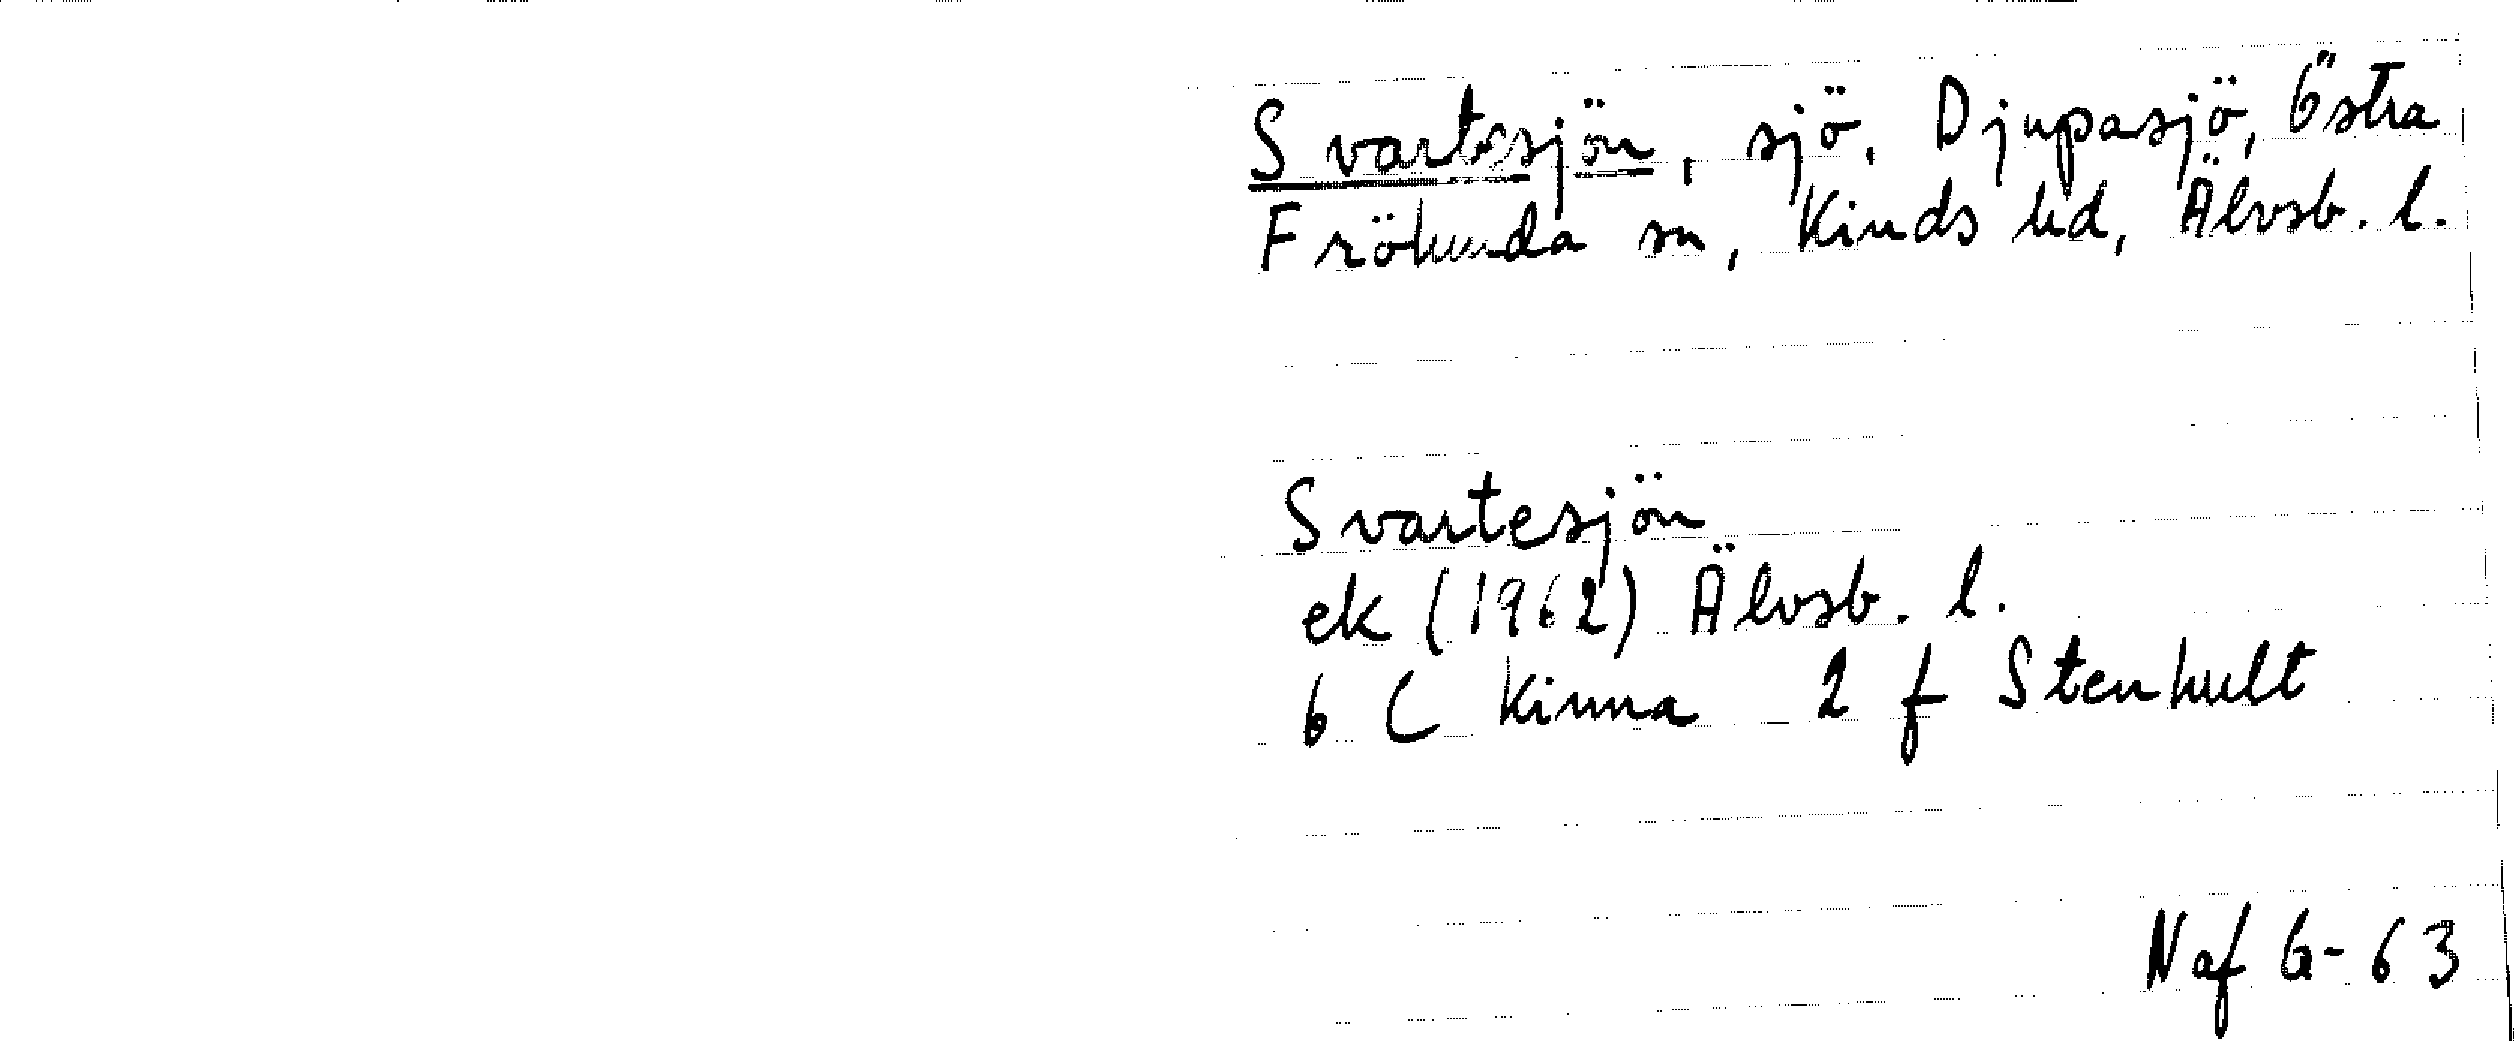 Svartesjön, sjö, Djupasjö, Östra
Frölunda sn, Kinds hd, Älvsb. l.
Svartesjön
ek (1962) Älvsb. l.
6 C Kinna 2 f Stenhult
Naf G-63